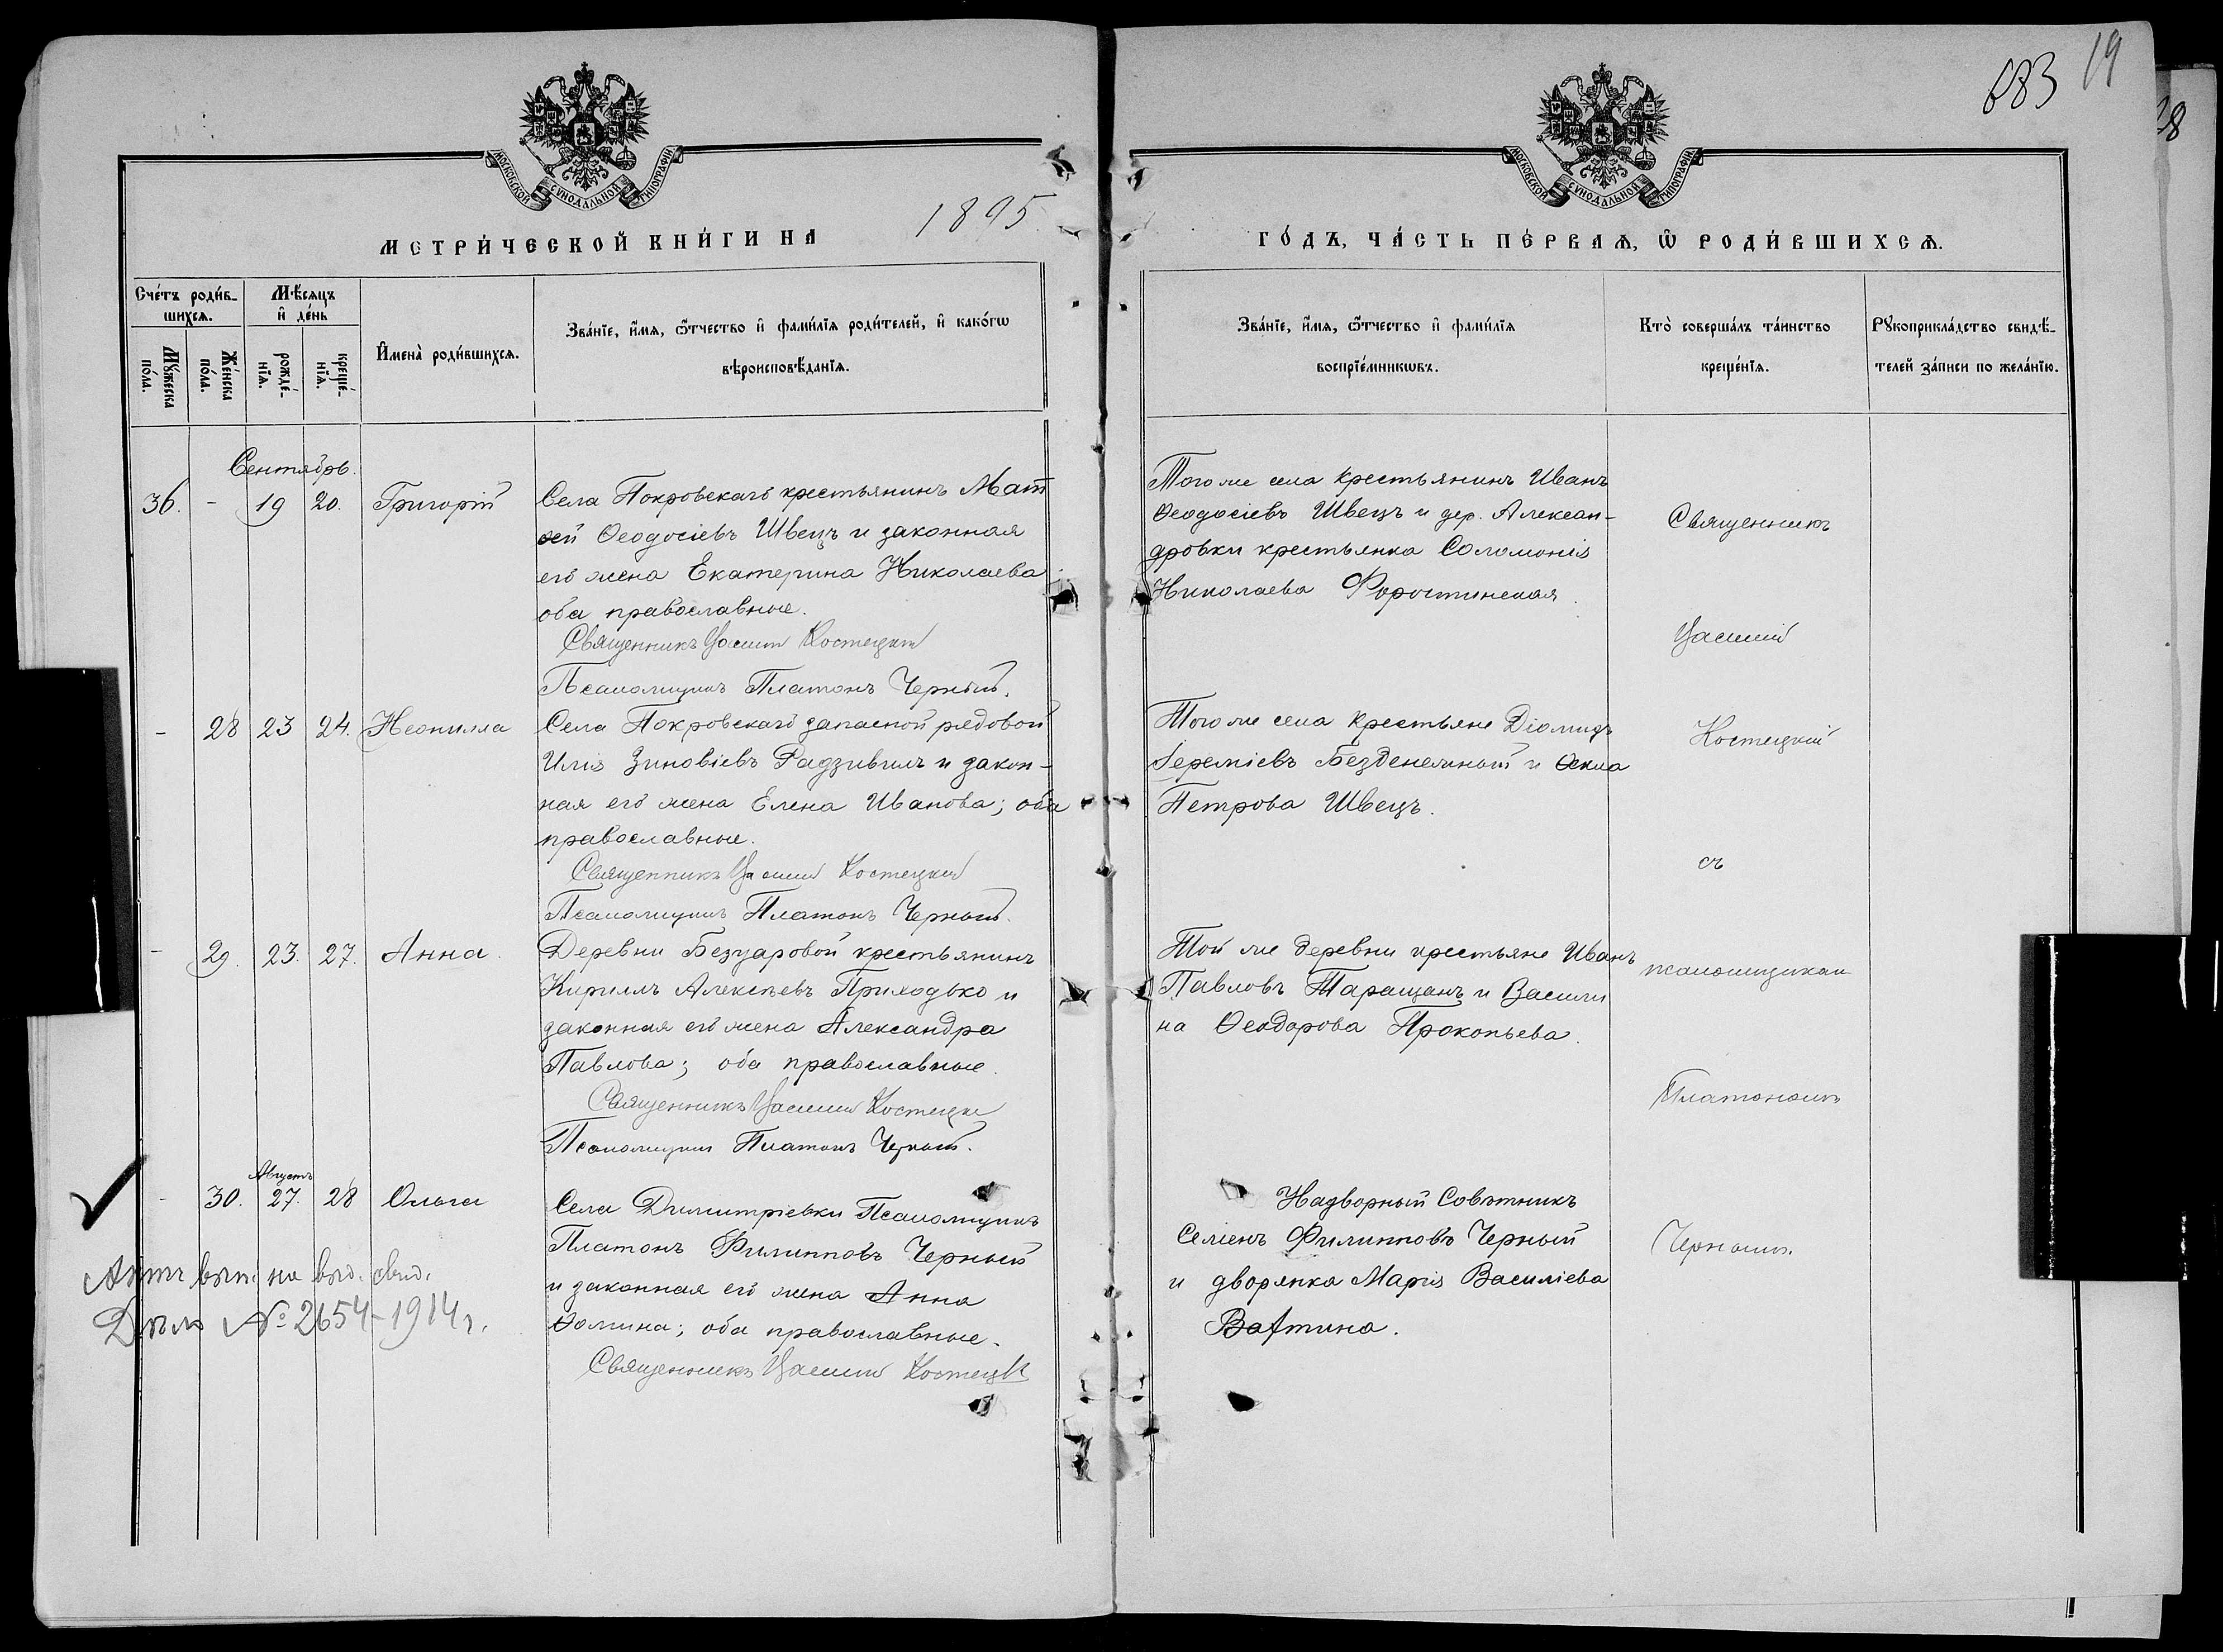 683 19
28
МОСКОВСКОЙ СѴНОДАЛЬНОЙ ТИПОГРАФІИ
МОСКОВСКОЙ СѴНОДАЛЬНОЙ ТИПОГРАФІИ
МЕТРИ́ЧЕСКОЙ КНИ́ГИ НА 1895
ГО́ДЪ, ЧА́СТЬ ПЕ́РВАѦ, Ѡ҆ РОДИ́ВШИХСѦ.
Сче́тъ роди́в-
шихсѧ.
Мѣ́сяцъ
и҆ де́нь
Мꙋ́жеска
по́ла.
Же́нска
по́ла.
рожде́-
нїѧ.
креще́-
нїѧ.
И҆мена̀ роди́вшихсѧ.
Зва́нїе, и҆́мѧ, ѻ҆́тчество и҆ фами́лїѧ роди́телей, и҆ како́гѡ
вѣроисповѣ́данїѧ.
Зва́нїе, и҆́мѧ, ѻ҆́тчество и҆ фами́лїѧ
воспрїе́мникѡвъ.
Кто̀ соверша́лъ та́инство
креще́нїѧ.
Рꙋкоприкла́дство свидѣ́-
телей за́писи по жела́нїю.
Сентябрь.
36. - 19 20. Григорій
Села Покровскаго крестьянинъ Мат
ѳей Ѳеодосіевъ Швецъ и законная
его жена Екатерина Николаева
оба православные.
Священникъ Василій Костецкій
Псаломщикъ Платонъ Черный.
Того же села крестьянинъ Иванъ
Ѳеодосіевъ Швецъ и дер. Алексан-
дровки крестьянка Соломонія
Николаева Форостинская
- 28 23 24. Неонилла
Села Покровскаго запасной рядовой
Илія Зиновіевъ Радзивилъ и закон-
ная его жена Елена Иванова; оба
православные.
Священникъ Василій Костецкій
Псаломщикъ Платонъ Черный.
Того же села крестьяне Діомидъ
Іереміевъ Безденежный и Ѳекла
Петрова Швецъ.
- 29. 23. 27. Анна.
Деревни Безуаровой крестьянинъ
Кириллъ Алексѣевъ Приходько и
законная его жена Александра
Павлова; оба православные.
Священникъ Василій Костецкі
Псаломщикъ Платонъ Черный.
Той же деревни крестьяне Иванъ
Павловъ Таращанъ и Васили
на Ѳеодорова Прокопьева.
Августъ
- 30. 27. 28 Ольга
Села Димитріевки Псаломщикъ
Платонъ Филипповъ Черный
и законная его жена Анна
Ѳомина; оба православные.
Священникъ Василій Костецк
Надворный Совѣтникъ
Семенъ Филипповъ Черный
и дворянка Марія Василіева
Вафтина.
Священникъ
Василій
Костецкій
съ
псаломщикомъ
Платономъ
Чернымъ.
вып. на выд. свид.
Дѣло № 2654-1914 г.